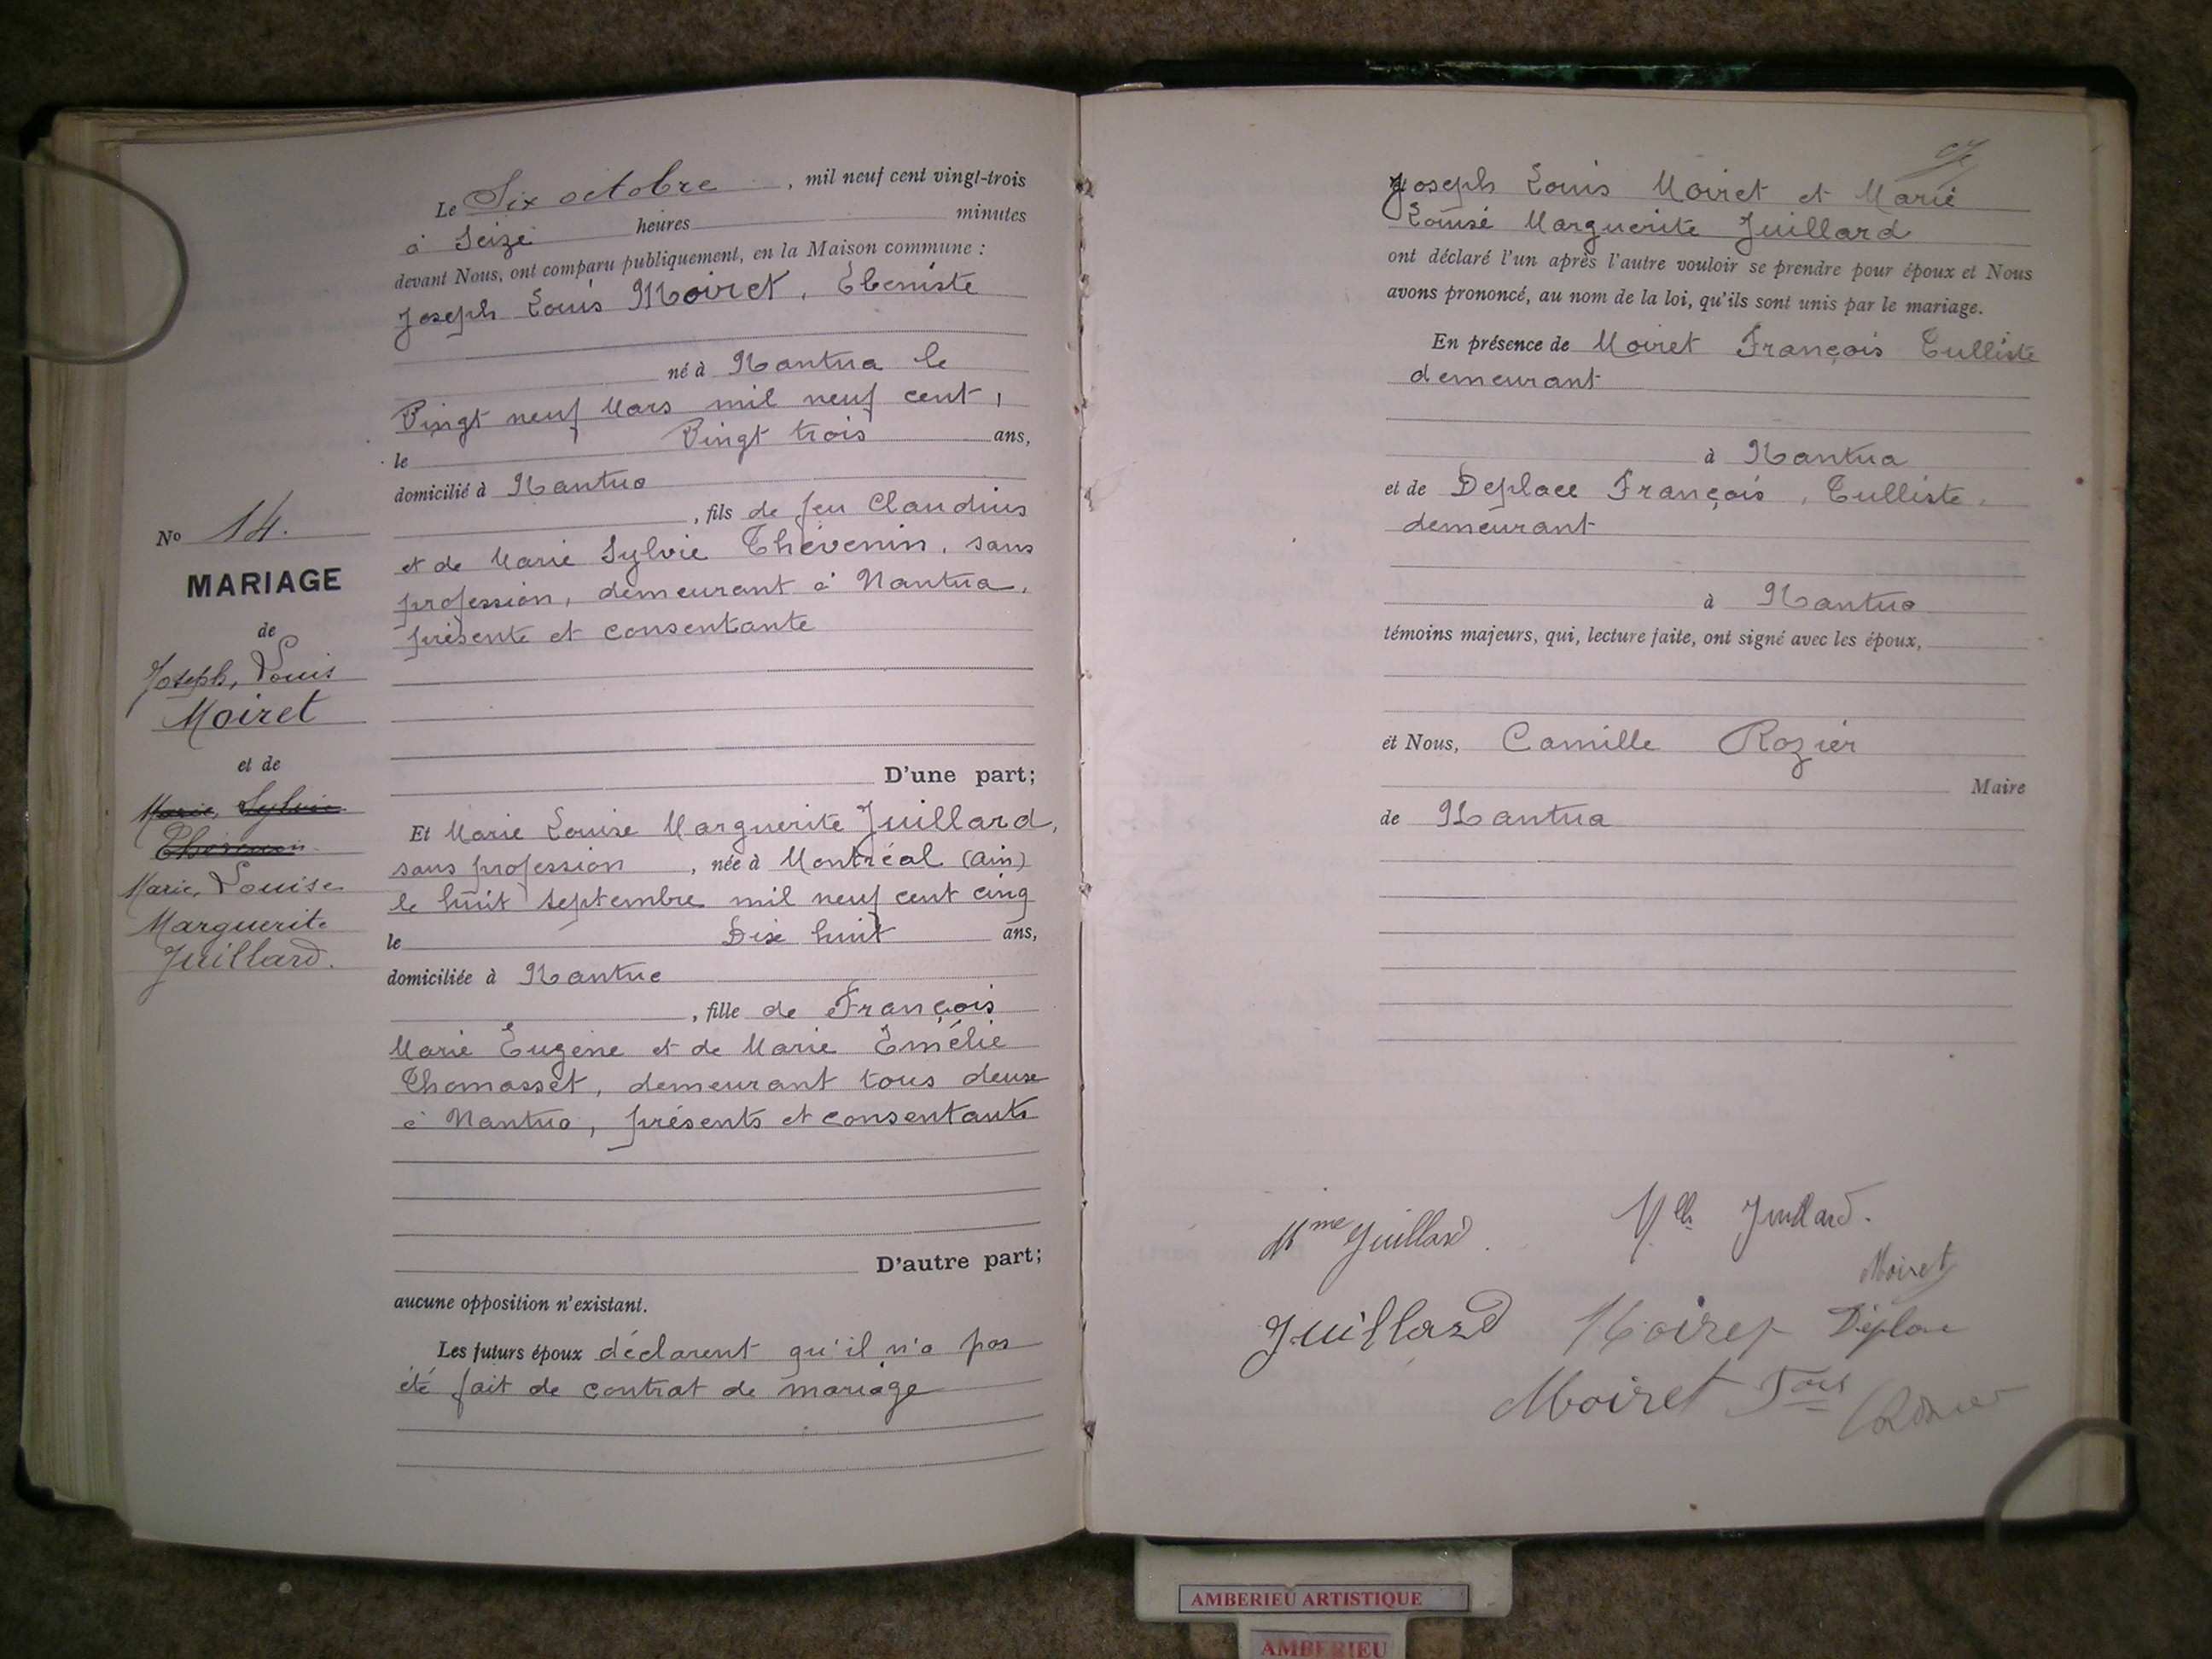 Le Six octobre, mil neuf cent vingt-trois
à Seize heures minutes
devant Nous, ont comparu publiquement, en la Maison commune :
Joseph Louis Moiret, Ebeniste
né à Nantua le
Vingt neuf Mars mil neuf cent,
le Vingt trois ans,
domicilié à Nantua
, fils de feu Claudius
et de Marie Sylvie Thévenin, sans
profession, demeurant à Nantua,
présente et consentante
D'une part;
Et Marie Louise Marguerite Juillard,
sans profession, née à Montréal (Ain)
le huit septembre mil neuf cent cinq
le Dix huit ans,
domiciliée à Nantua
, fille de François
Marie Eugène et de Marie Emélie
Thomasset, demeurant tous deux
à Nantua, présents et consentants
D'autre part;
aucune opposition n'existant.
Les futurs époux déclarent qu'il n'a pas
été fait de contrat de mariage
No 14.
MARIAGE
de
Joseph, Louis
Moiret
et de
Marie, Sylvie
Thévenin
Marie, Louise
Marguerite
Juillard.
Joseph Louis Moiret et Marie
Louise Marguerite Juillard
ont déclaré l'un après l'autre vouloir se prendre pour époux et Nous
avons prononcé, au nom de la loi, qu'ils sont unis par le mariage.
En présence de Moiret François Tulliste
demeurant
à Nantua
et de Deplace François, Tulliste,
demeurant
à Nantua
témoins majeurs, qui, lecture faite, ont signé avec les époux,
et Nous, Camille Rozier
Maire
de Nantua
Mme Juillard. Mlle Juillard.
Moiret
Juillard Moiret Déplace
Moiret Fois
AMBERIEU ARTISTIQUE
AMBERIEU